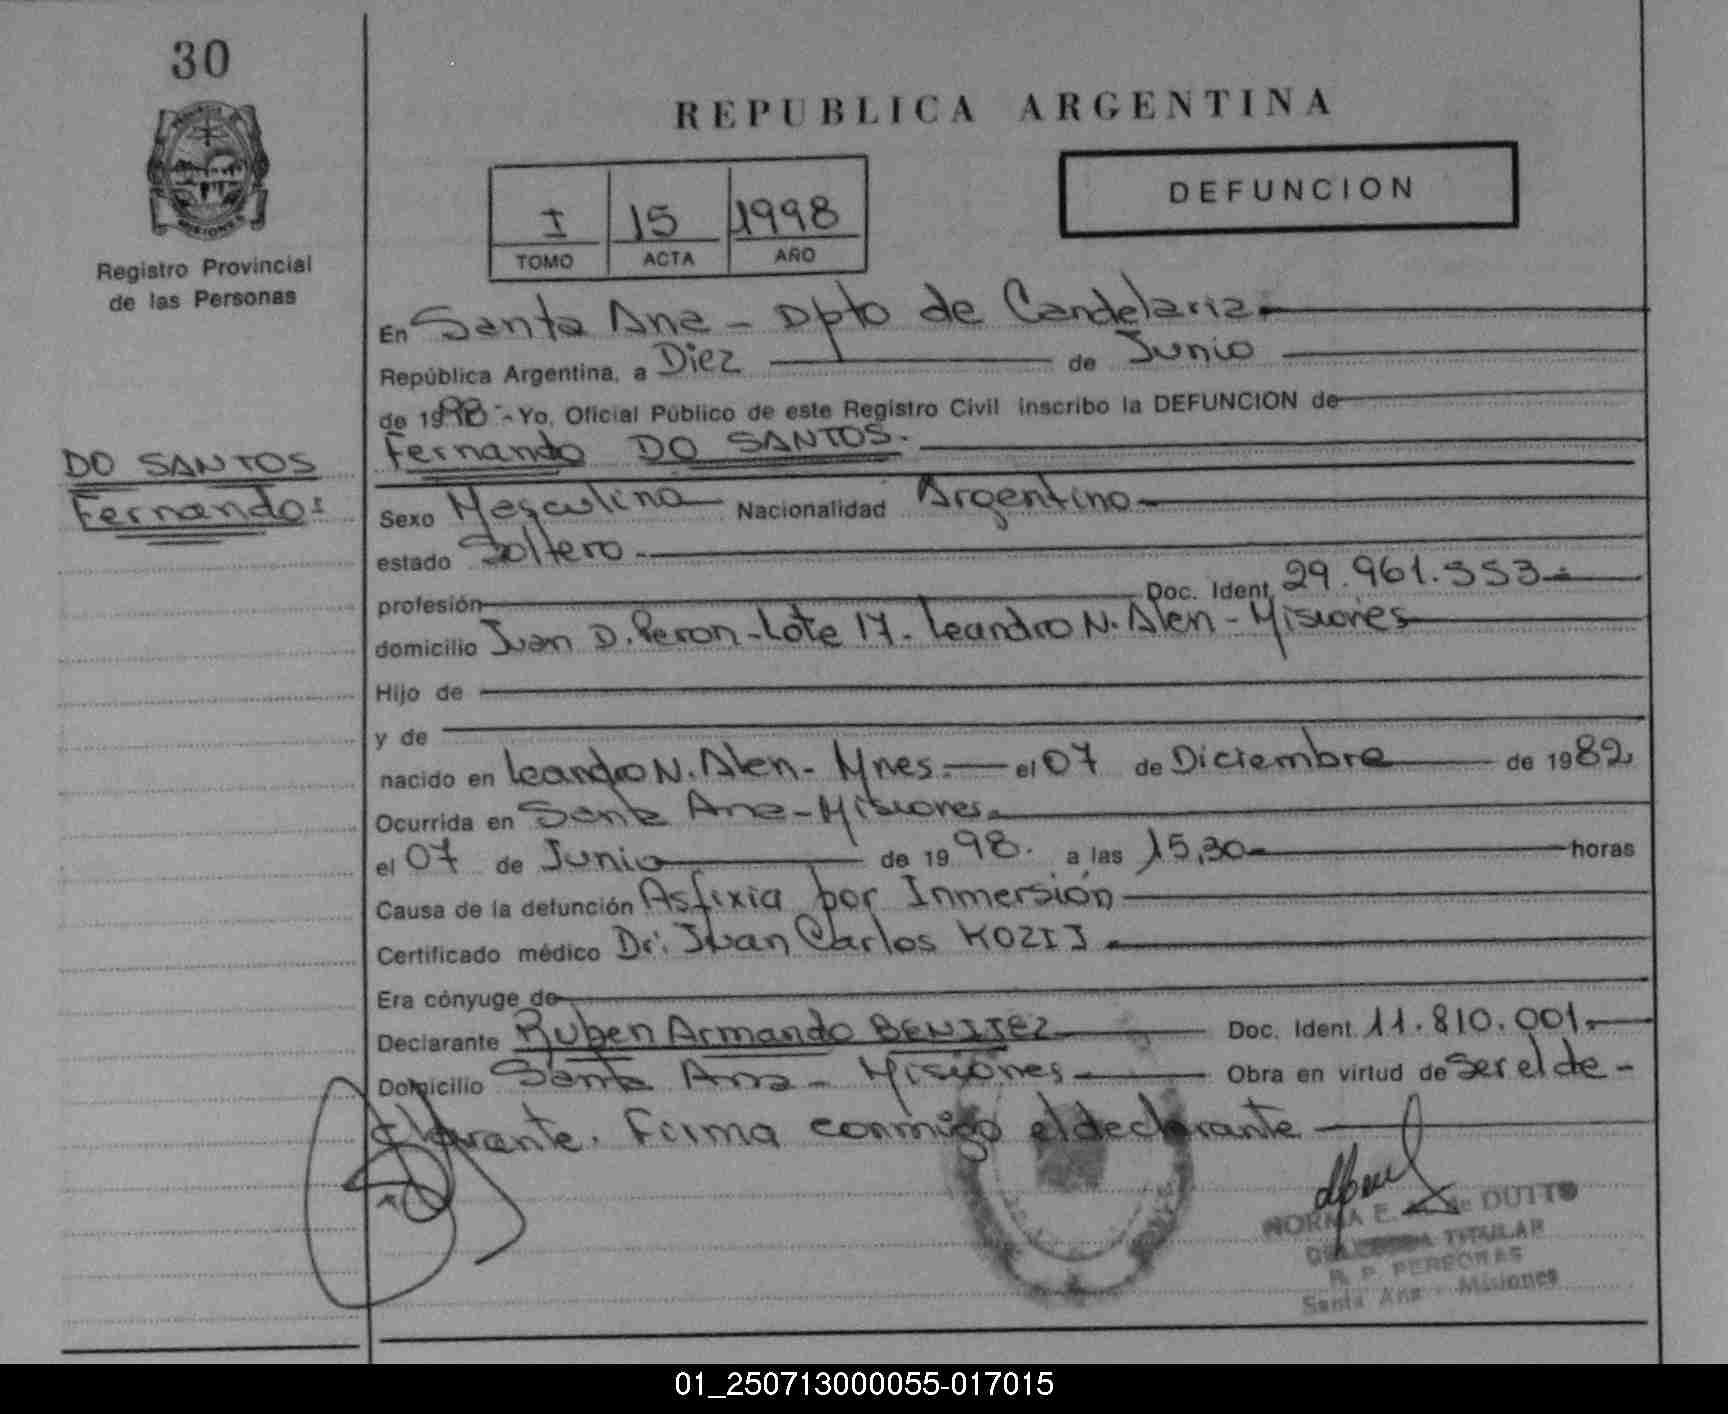 30
REPUBLICA ARGENTINA
I 15 1998
TOMO ACTA AÑO
DEFUNCION
MISIONES
Registro Provincial
de las Personas
En Santa Ana - Dpto de Candelaria
República Argentina, a Diez de Junio
de 1998 - Yo, Oficial Público de este Registro Civil inscribo la DEFUNCION de
Fernando DO SANTOS.
DO SANTOS
Fernando:
Sexo Masculino Nacionalidad Argentino
estado Soltero
profesión Doc. Ident. 29.961.553
domicilio Juan D. Peron - Lote 17. Leandro N. Alen - Misiones
Hijo de
y de
nacido en Leandro N. Alen - Mnes. el 07 de Diciembre de 1982
Ocurrida en Santa Ana - Misiones
el 07 de Junio de 1998. a las 15,30 horas
Causa de la defunción Asfixia por Inmersión
Certificado médico Dr. Juan Carlos KOZIJ
Era cónyuge de
Declarante Ruben Armando BENITEZ Doc. Ident. 11.810.001
Domicilio Santa Ana - Misiones Obra en virtud de Ser el de-
clarante. Firma conmigo el declarante
NORMA E. de DUTTO
TITULAR
R. P. PERSONAS
Santa Ana - Misiones
01_250713000055-017015